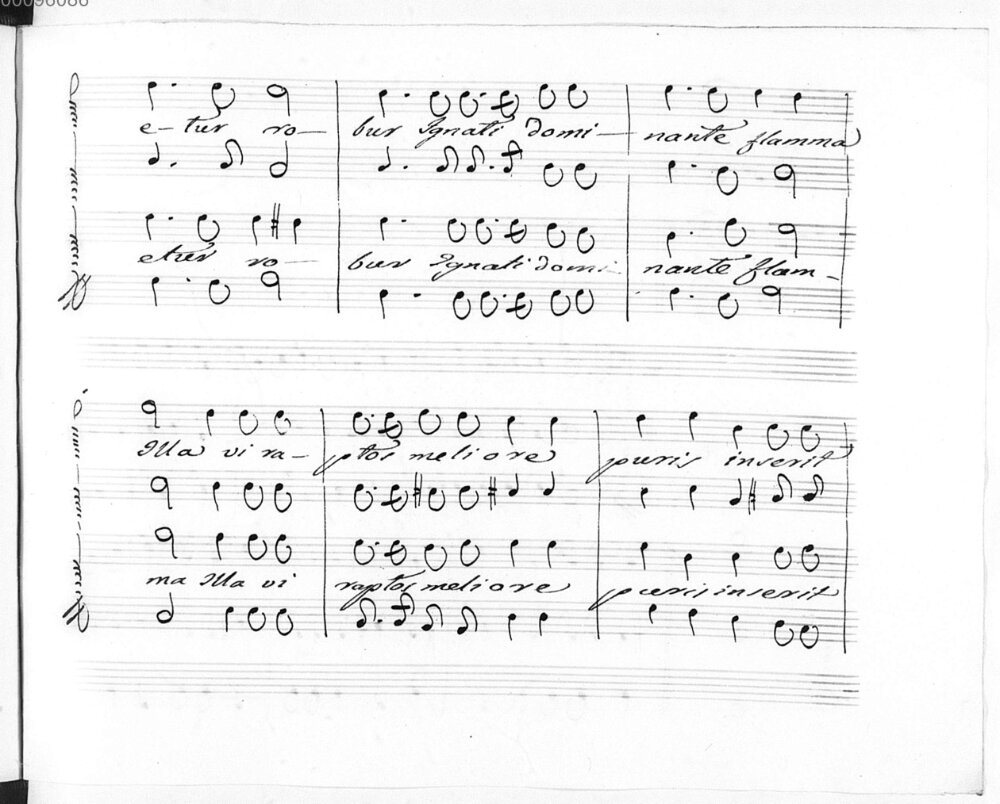 00096086
e-tur ro- bur Ignati domi- nante flamma
etur ro- bur Ignati domi- nante flam-
Illa vi ra- ptos meliore puris inserit
ma Illa vi raptos meliore puris inserit